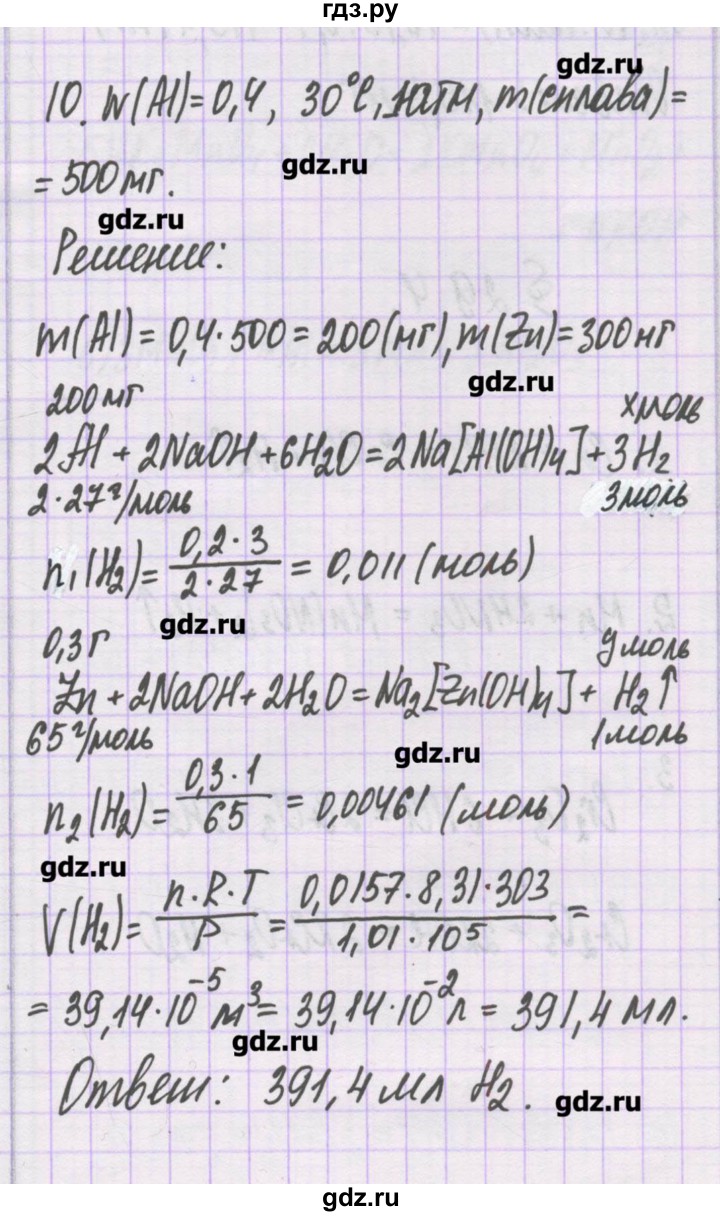 гдз.ру
gdz.ru
10. w(Al)=0,4, 30°C, 1атм, m(сплава)=
gdz.ru
= 500мг.
gdz.ru
Решение:
m(Al)=0,4·500=200(мг), m(Zn)=300мг
gdz.ru
200мг xмоль
2Al+2NaOH+6H2O=2Na[Al(OH)4]+3H2
2·27г/моль 3моль
n1(H2)= 0,2·3 / 2·27 = 0,011 (моль)
gdz.ru
0,3г yмоль
Zn+2NaOH+2H2O=Na2[Zn(OH)4]+ H2↑
65г/моль 1моль
gdz.ru
n2(H2)= 0,3·1 / 65 = 0,00461 (моль)
gdz.ru
V(H2)= n·R·T / P = 0,0157·8,31·303 / 1,01·10^5 =
= 39,14·10^-5 м^3 = 39,14·10^-2 л = 391,4 мл.
gdz.ru
Ответ: 391,4 мл H2.
gdz.ru
gdz.ru